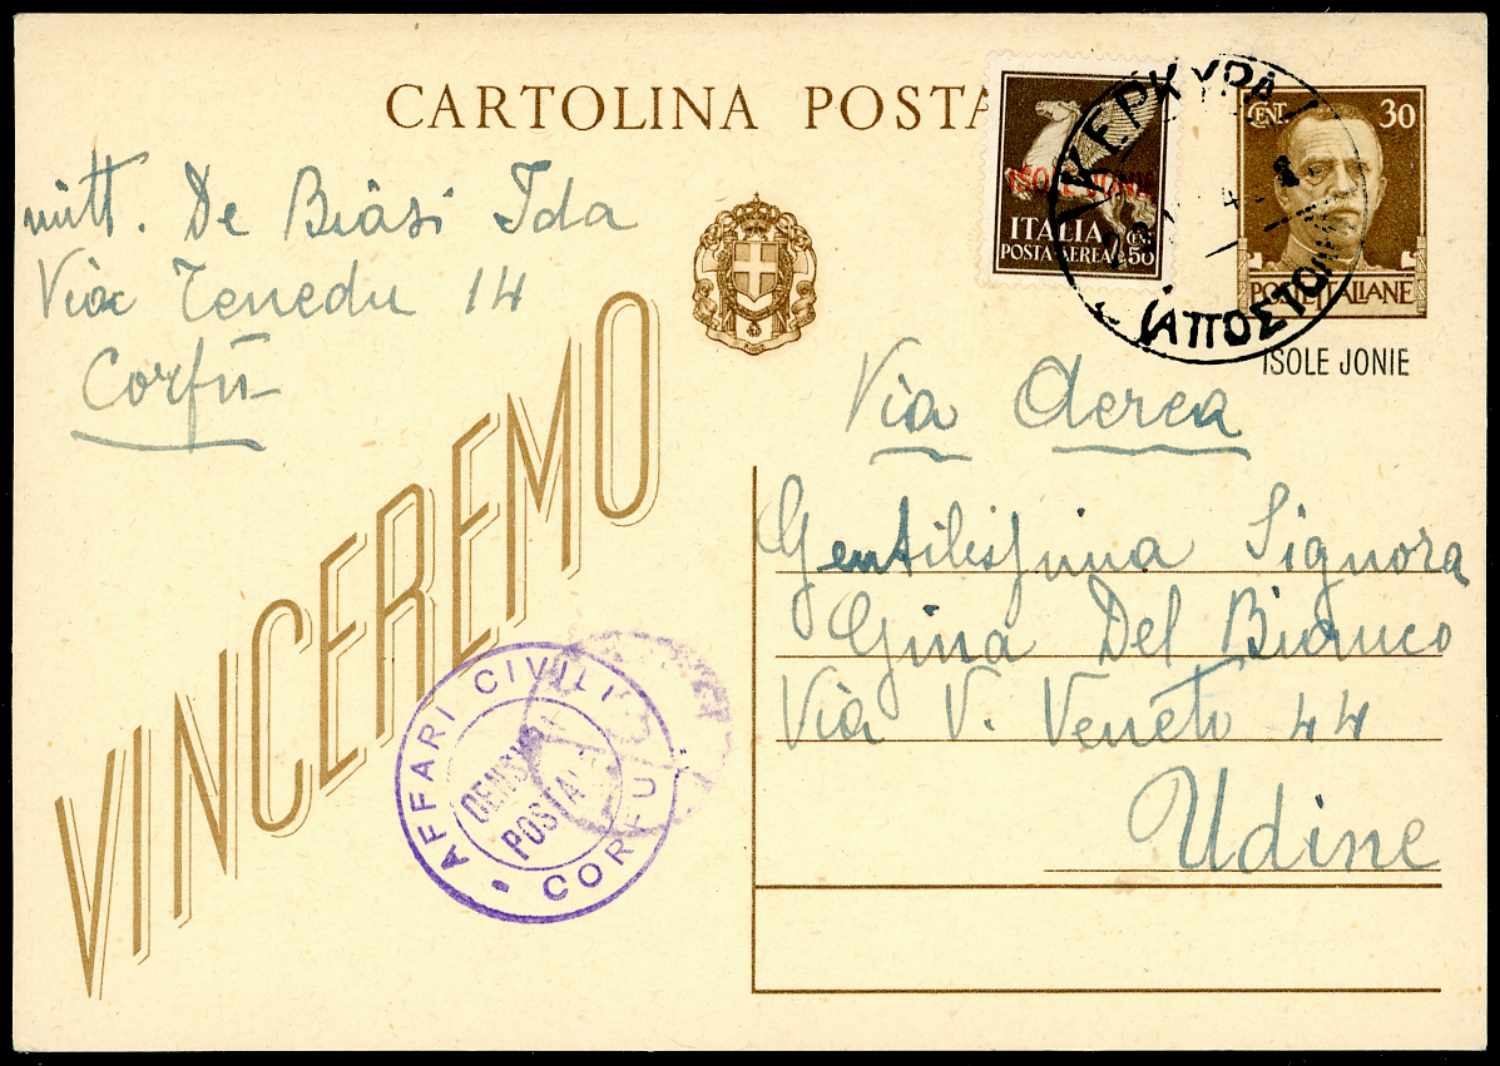 CARTOLINA POSTA
CENT. 30
POSTE ITALIANE
ISOLE JONIE
ISOLE JONIE
ITALIA
POSTA AEREA CENT. 50
ΚΕΡΚΥΡΑ
mitt. De Biasi Ida
Via Tenedu 14
Corfù
Via Aerea
Gentilissima Signora
Gina Del Bianco
Via V. Veneto 44
Udine
VINCEREMO
AFFARI CIVILI
CORFU
POSTALE